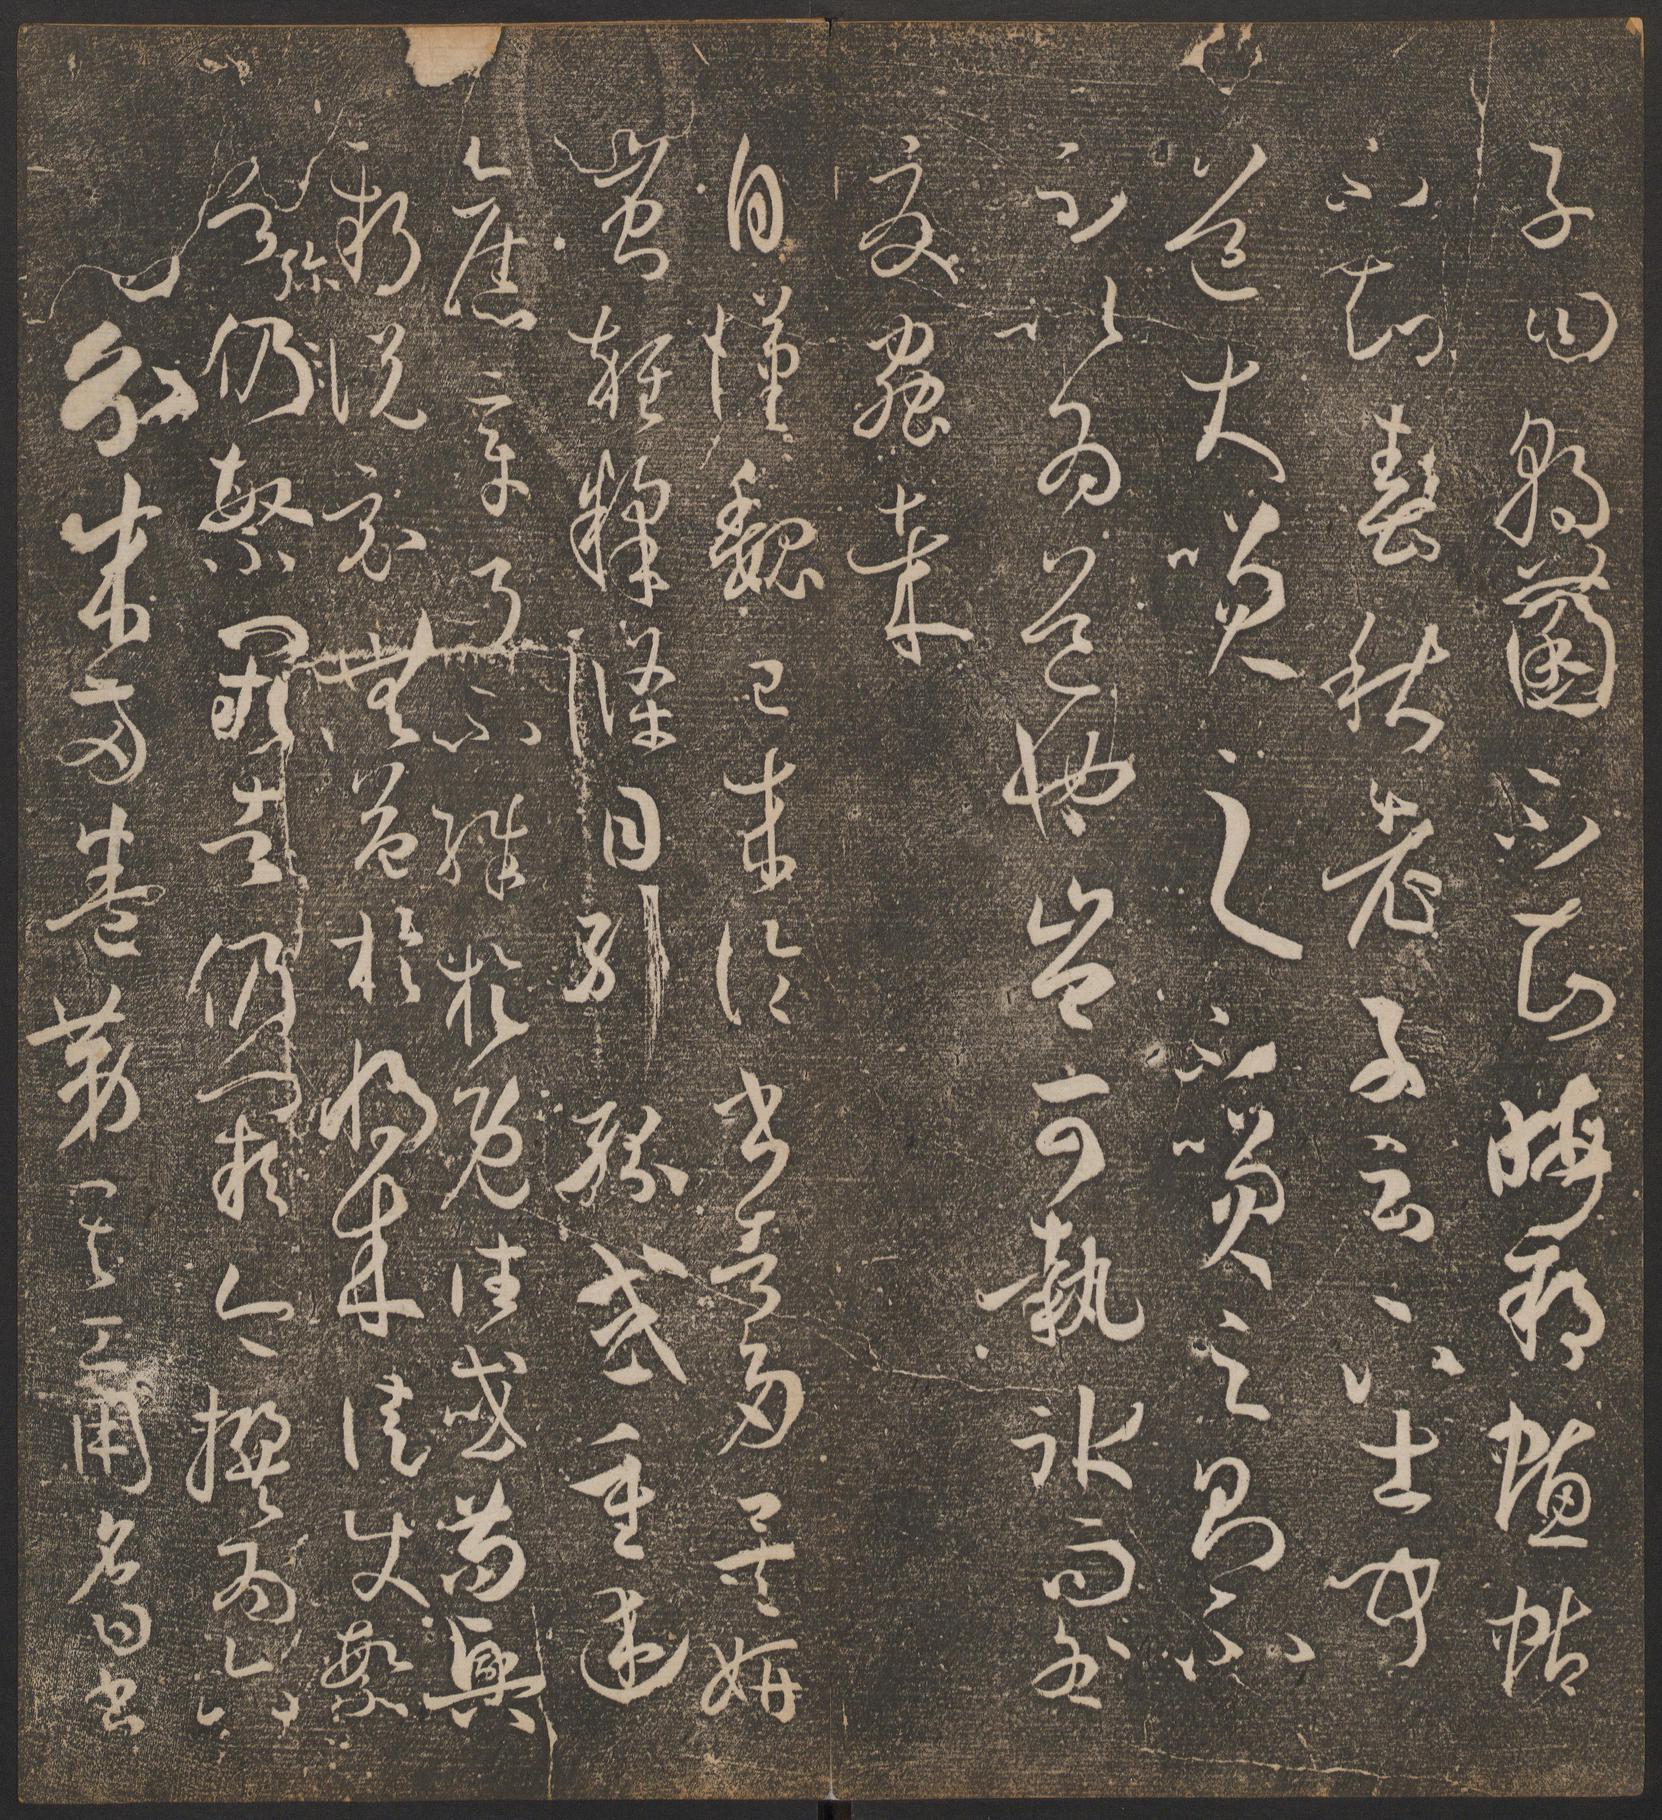 子曰朝菌不知晦朔蟪蛄
不知春秋老子云下士聞
道大笑之不笑之則不
足以為道也豈可執冰而咎
夏蟲哉
自漢魏已來論書者多矣妍
蚩雜糅條目糾紛或重述
舊章了不殊於既往或苟興
新說竟無益於將來徒使繁
者彌仍繁闕者仍闕今撰為六
篇分成兩卷第其工用名曰書